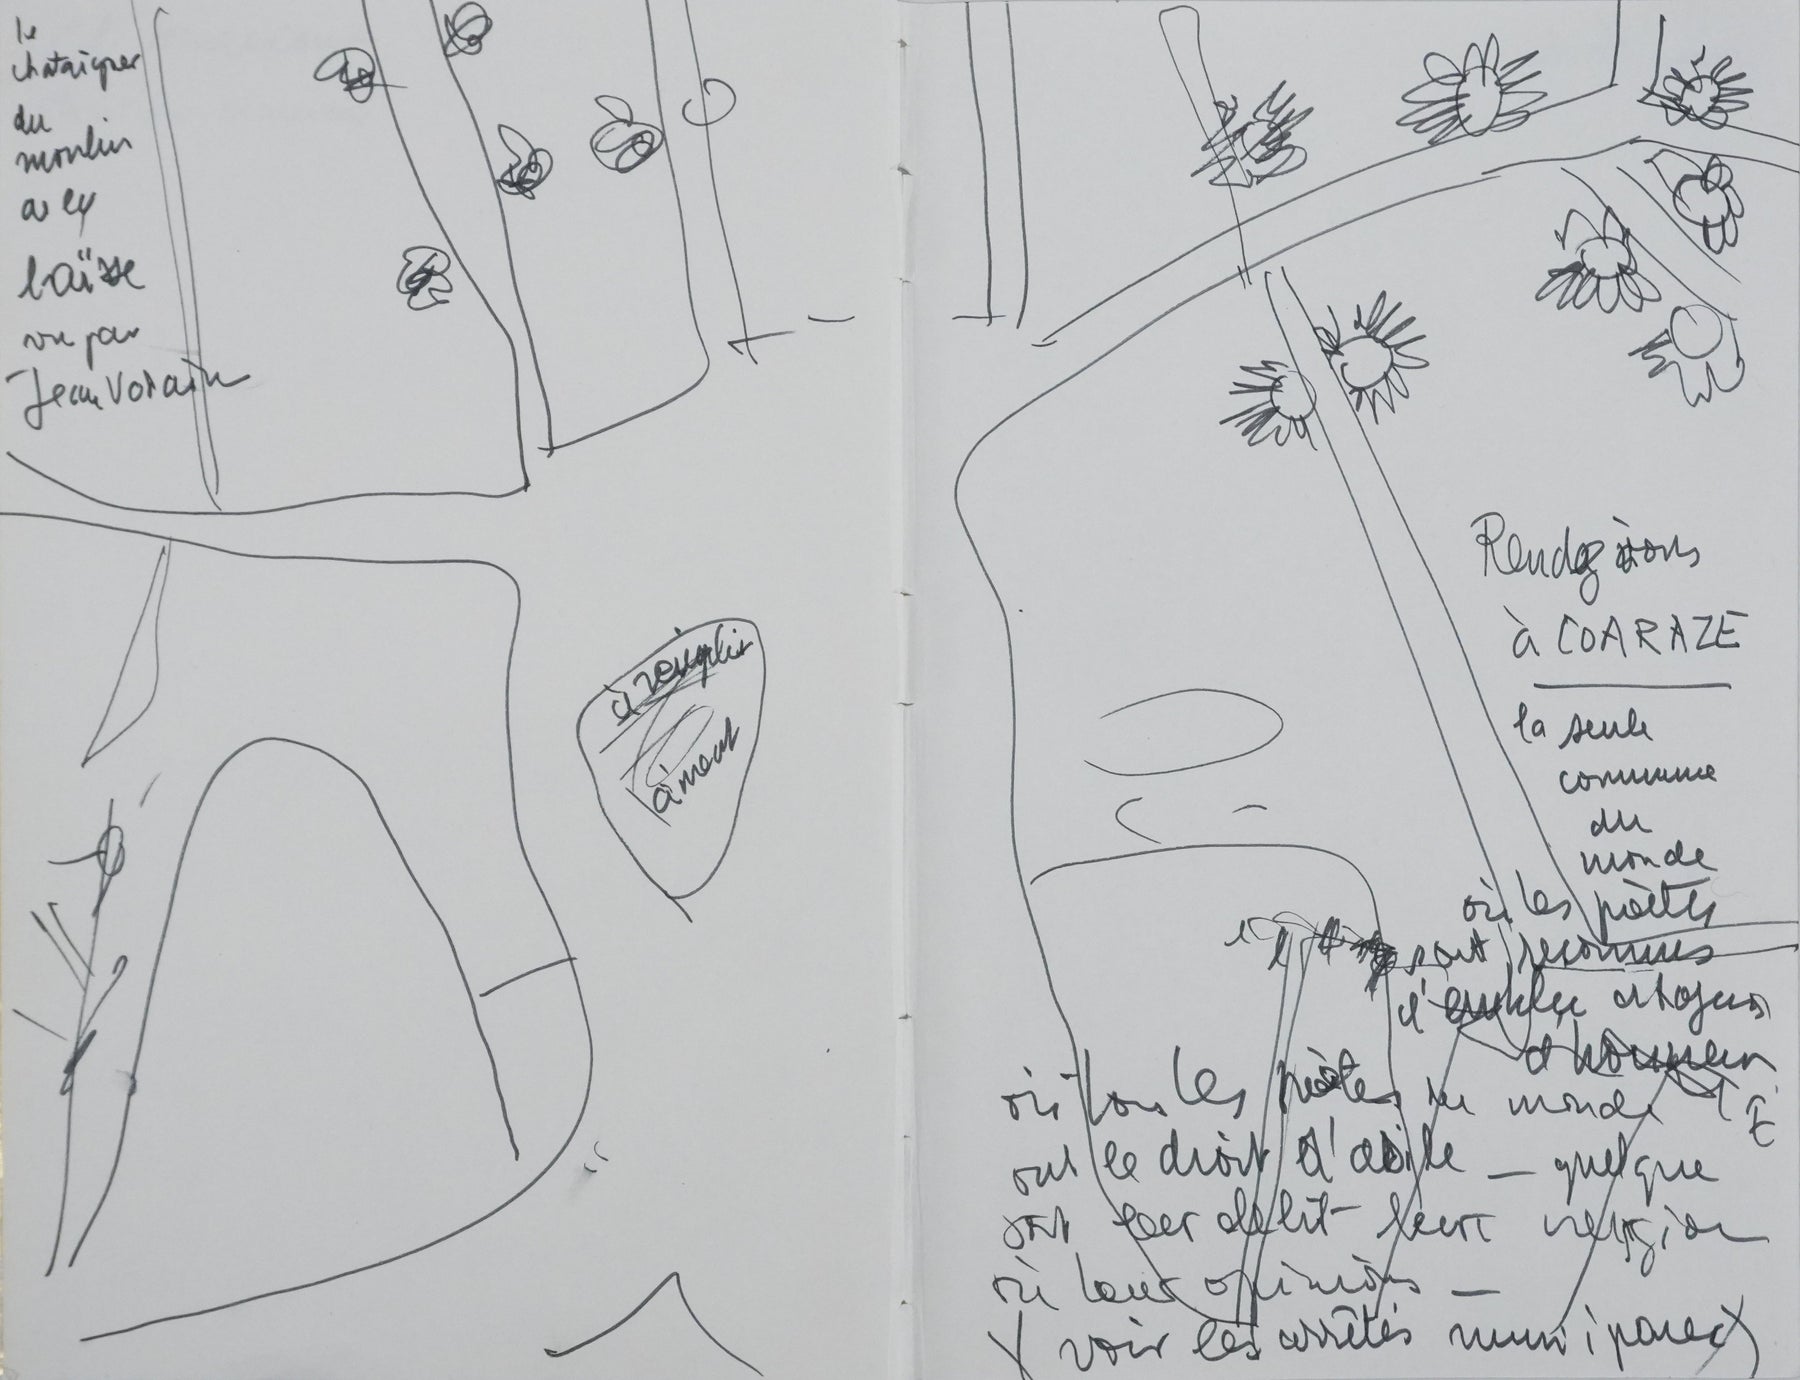 le
chataigner
du
moulin
vu par
Jean
à remplir
Rendez vous
à COARAZE
la seule
commune
du
monde
où les poètes
sont reconnus
d'emblée citoyens
d'honneur
où tous les poètes du monde
ont le droit d'asile _ quelque
soit leur délit leur religion
où leur opinions _
( voir les arrêtés municipaux )